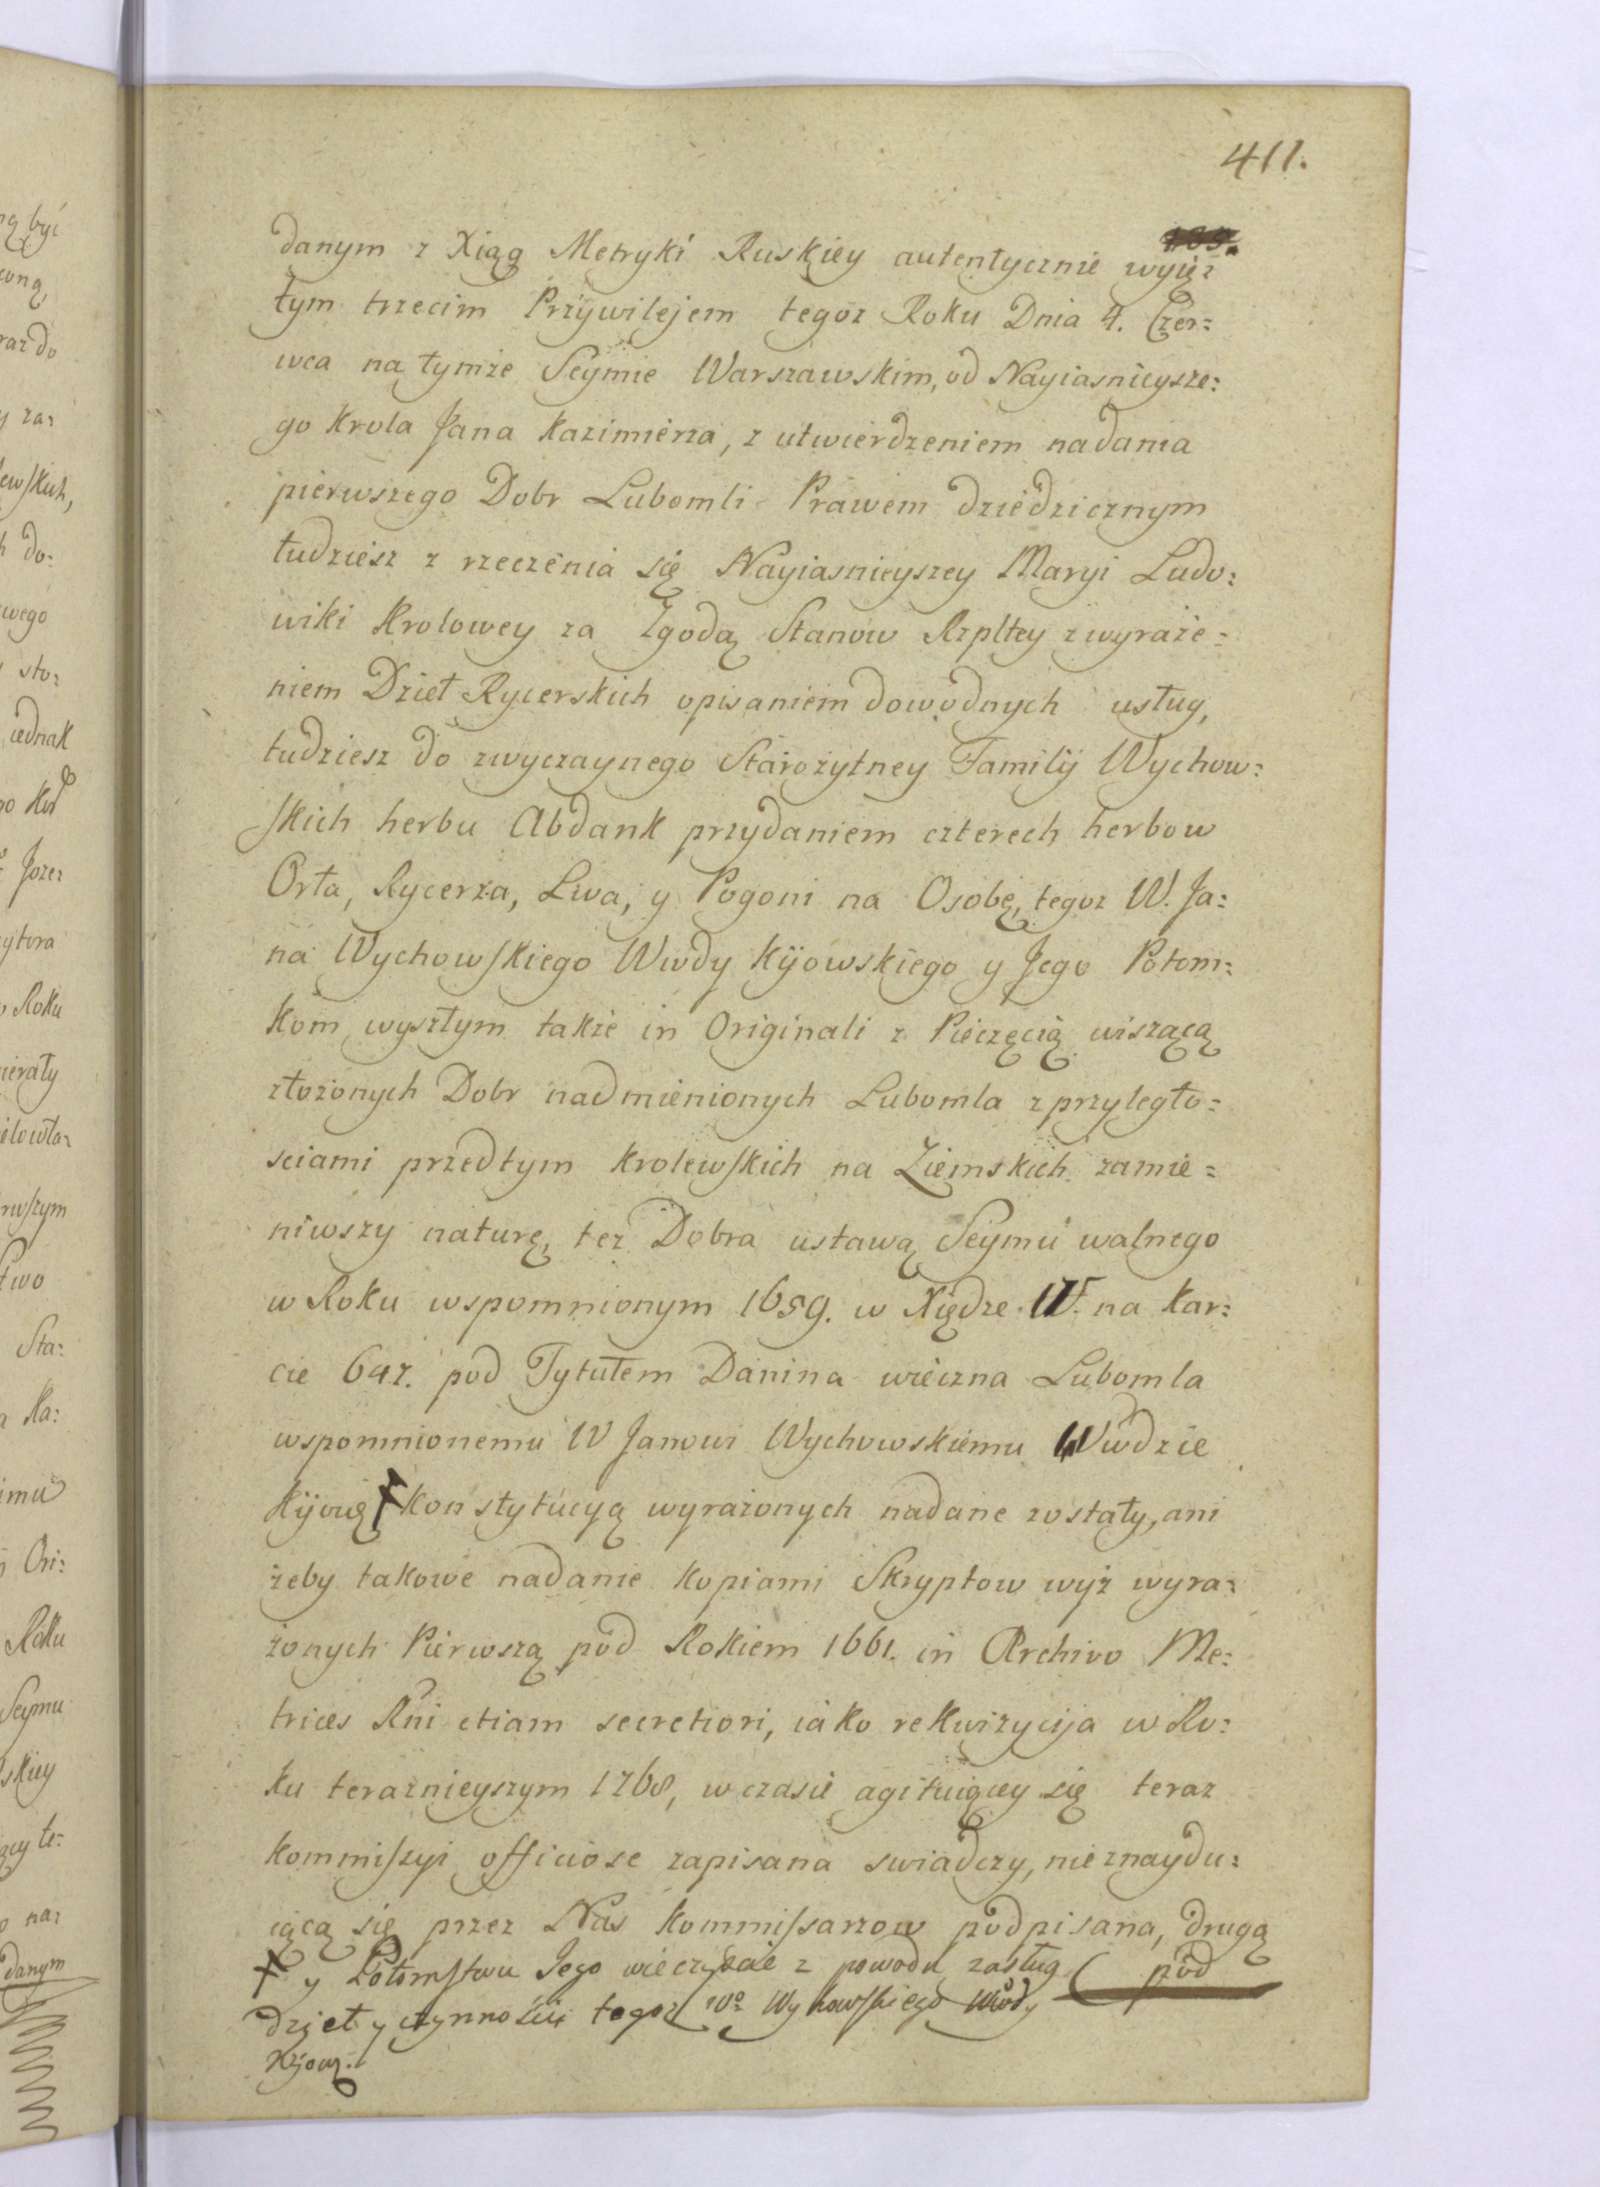 411.
danym z Xiąg Metryki Ruskiey autentycznie wyięz
tym trzecim Przywilejem tegoz Roku Dnia 4. Czer:
wca na tymże Seymie Warszawskim, od Nayiasnieysze:
go Krola Jana Kazimierza, z utwierdzeniem nadania
pierwszego Dobr Lubomli Prawem dziedzicznym
tudziesz z rzeczenia się Nayiasnieyszey Maryi Ludo:
wiki Krolowey za Zgodą Stanow Rzpltey z wyraże:
niem Dzieł Rycerskich opisaniem dowodnych usług,
tudziesz do zwyczaynego Starożytney Familÿ Wychow:
skich herbu Abdank przydaniem czterech herbow
Orła, Rycerza, Lwa, y Pogoni na Osobę, tegoz W. Ja:
na Wychowskiego Wwdy Kÿowskiego y Jego Potom:
kom wyszłym także in Originali z Pieczęcią wiszącą
złożonych Dobr nadmienionych Lubomla z przyległo:
sciami przedtym Krolewskich na Ziemskich zamie:
niwszy naturę, tez Dobra ustawą Seymu walnego
w Roku wspomnionym 1659. w Xiędze IV. na kar:
cie 647. pod Tytułem Danina wieczna Lubomla
wspomnionemu W Janowi Wychowskiemu Wwdzie
Kÿowę + Konstytucyą wyrażonych nadane zostały, ani
żeby takowe nadanie kopiami Skryptow wyż wyra:
żonych Pierwszą pod Rokiem 1661. in Archivo Me:
trices Rni etiam secretiori, iako rekwizycija w Ro:
ku teraznieyszym 1768, w czasie agituiącey się teraz
Kommiszyi officiose zapisana swiadczy, nieznaydu:
iącą się przez Nas Kommissarzow podpisana, drugą
pod
+ y Potomstwu Jego wieczyscie z powodu zasług
dzieł y czynności tegoz Wo Wyhowskiego Wwdy
Kÿowę.